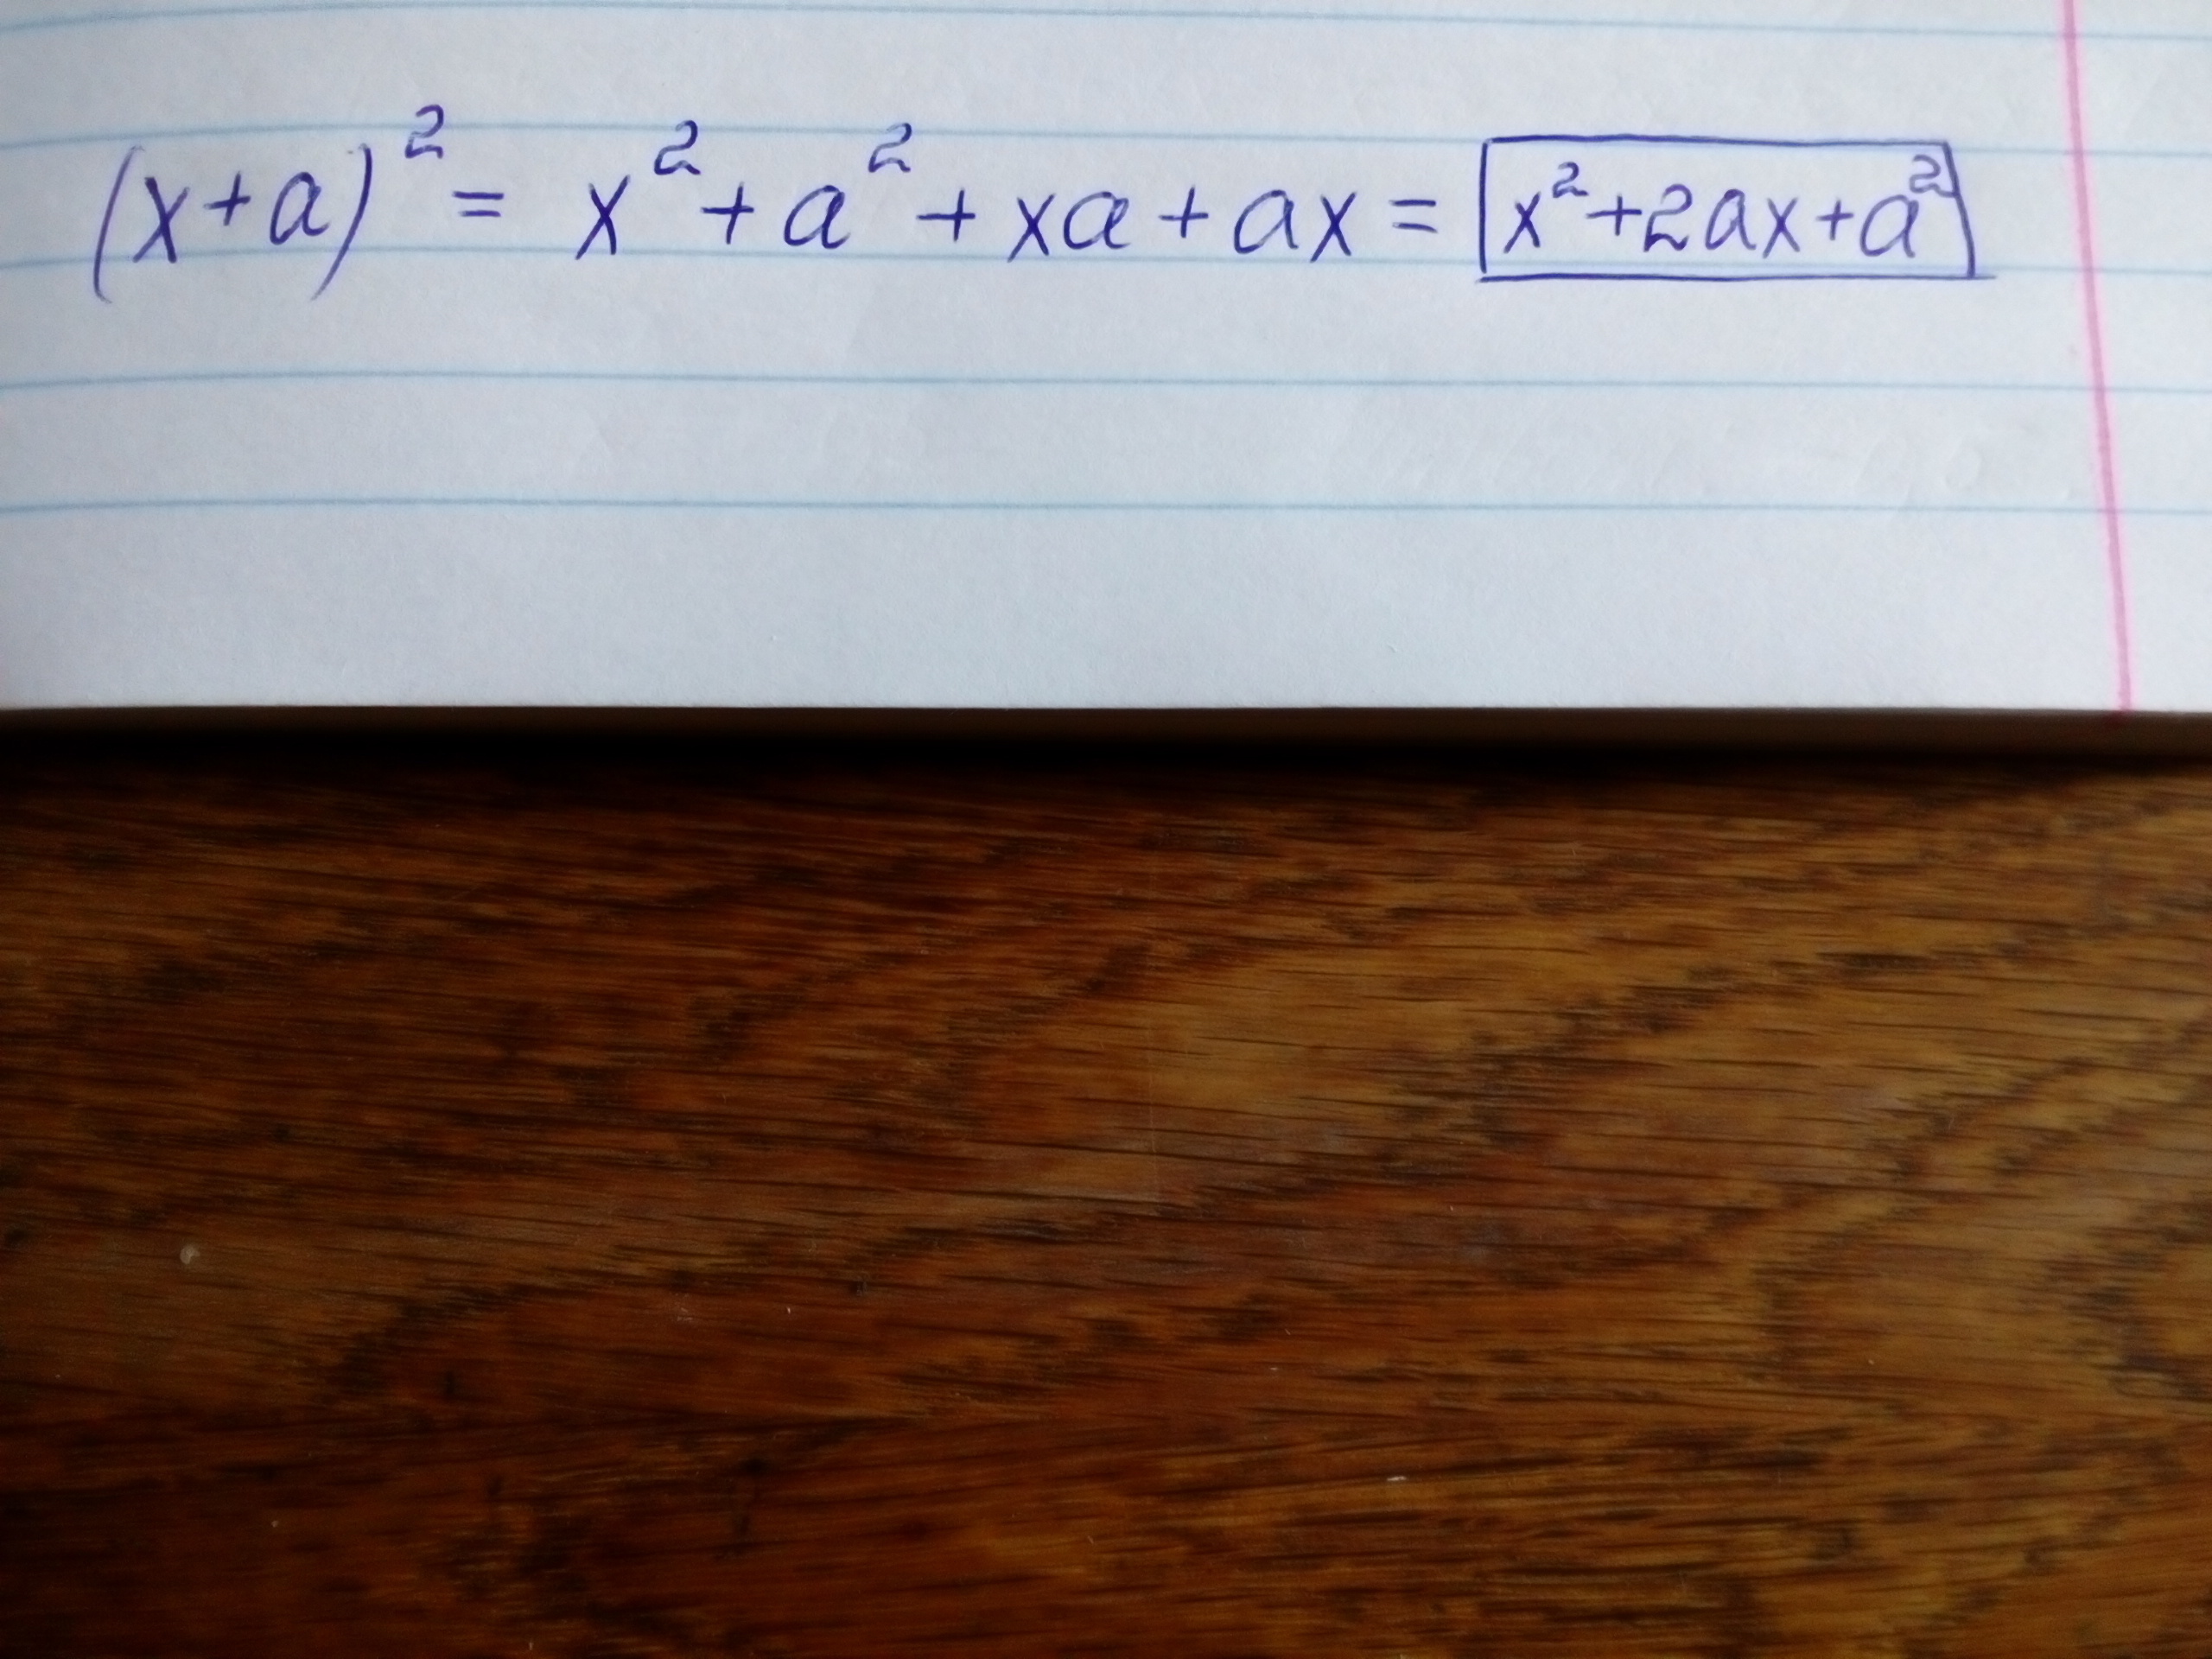 (x+a)² = x² + a² + xa + ax = x²+2ax+a²